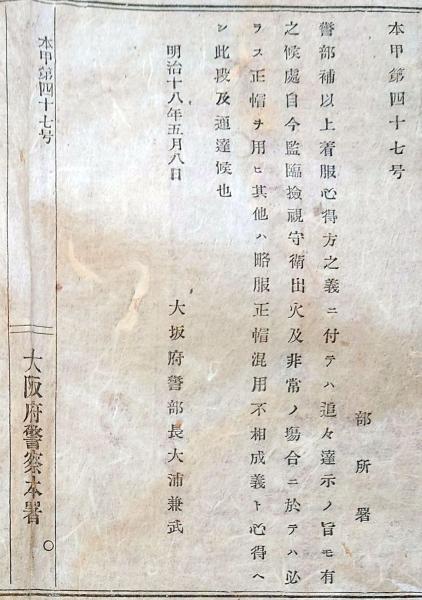 本甲第四十七号
部所署
警部補以上着服心得方之義ニ付テハ追々達示ノ旨モ有
之候處自今監臨撿視守衛出火及非常ノ塲合ニ於テハ必
ラス正帽ヲ用ヒ其他ハ略服正帽混用不相成義ト心得ヘ
シ此段及通達候也
明治十八年五月八日
大坂府警部長大浦兼武
本甲第四十七号
大阪府警察本署
〇